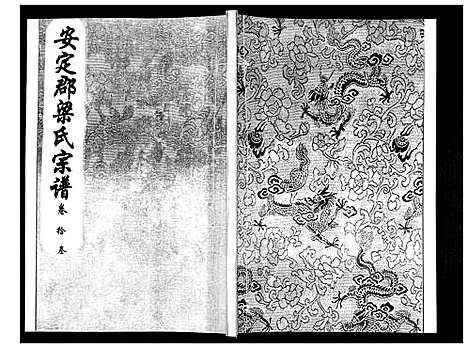 安定郡梁氏宗谱
卷拾叁